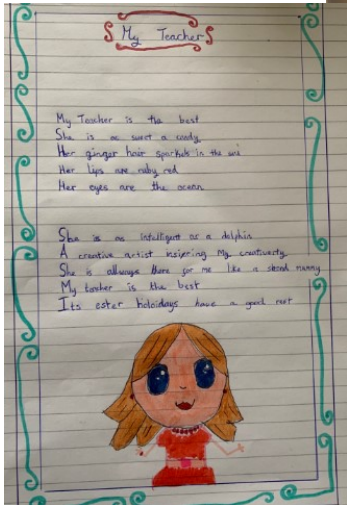 My Teacher
My Teacher is the best
She is as sweet a candy
Her ginger hair sparkels in the wind
Her lips are ruby red
Her eyes are the ocean
She is as intelligent as a dolphin
A creative artist insjering My creativerty
She is allways there for me like a second mummy
My teacher is the best
Its ester holoidays have a good rest